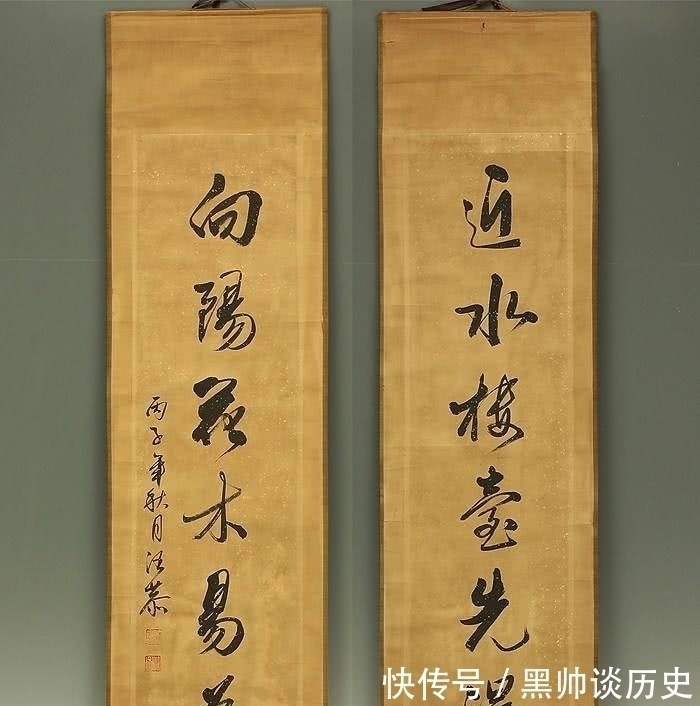 近水楼臺先得
向陽花木易為
丙子年秋月汪恭
快传号/黑帅谈历史